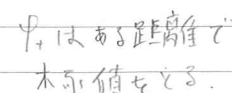 φ₊ はある距離で
極小値をとる.